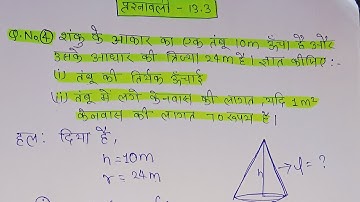 प्रश्नावली - 13.3
Q.No④ शंकु के आकार का एक तंबू 10m ऊँचा है और
उसके आधार की त्रिज्या 24m है। ज्ञात कीजिए :-
(i) तंबू की तिर्यक ऊँचाई
(ii) तंबू में लगे कैनवास की लागत, यदि 1m²
कैनवास की लागत 70 रूपय है।
हल: दिया है,
h = 10m
r = 24m
h
→ l = ?